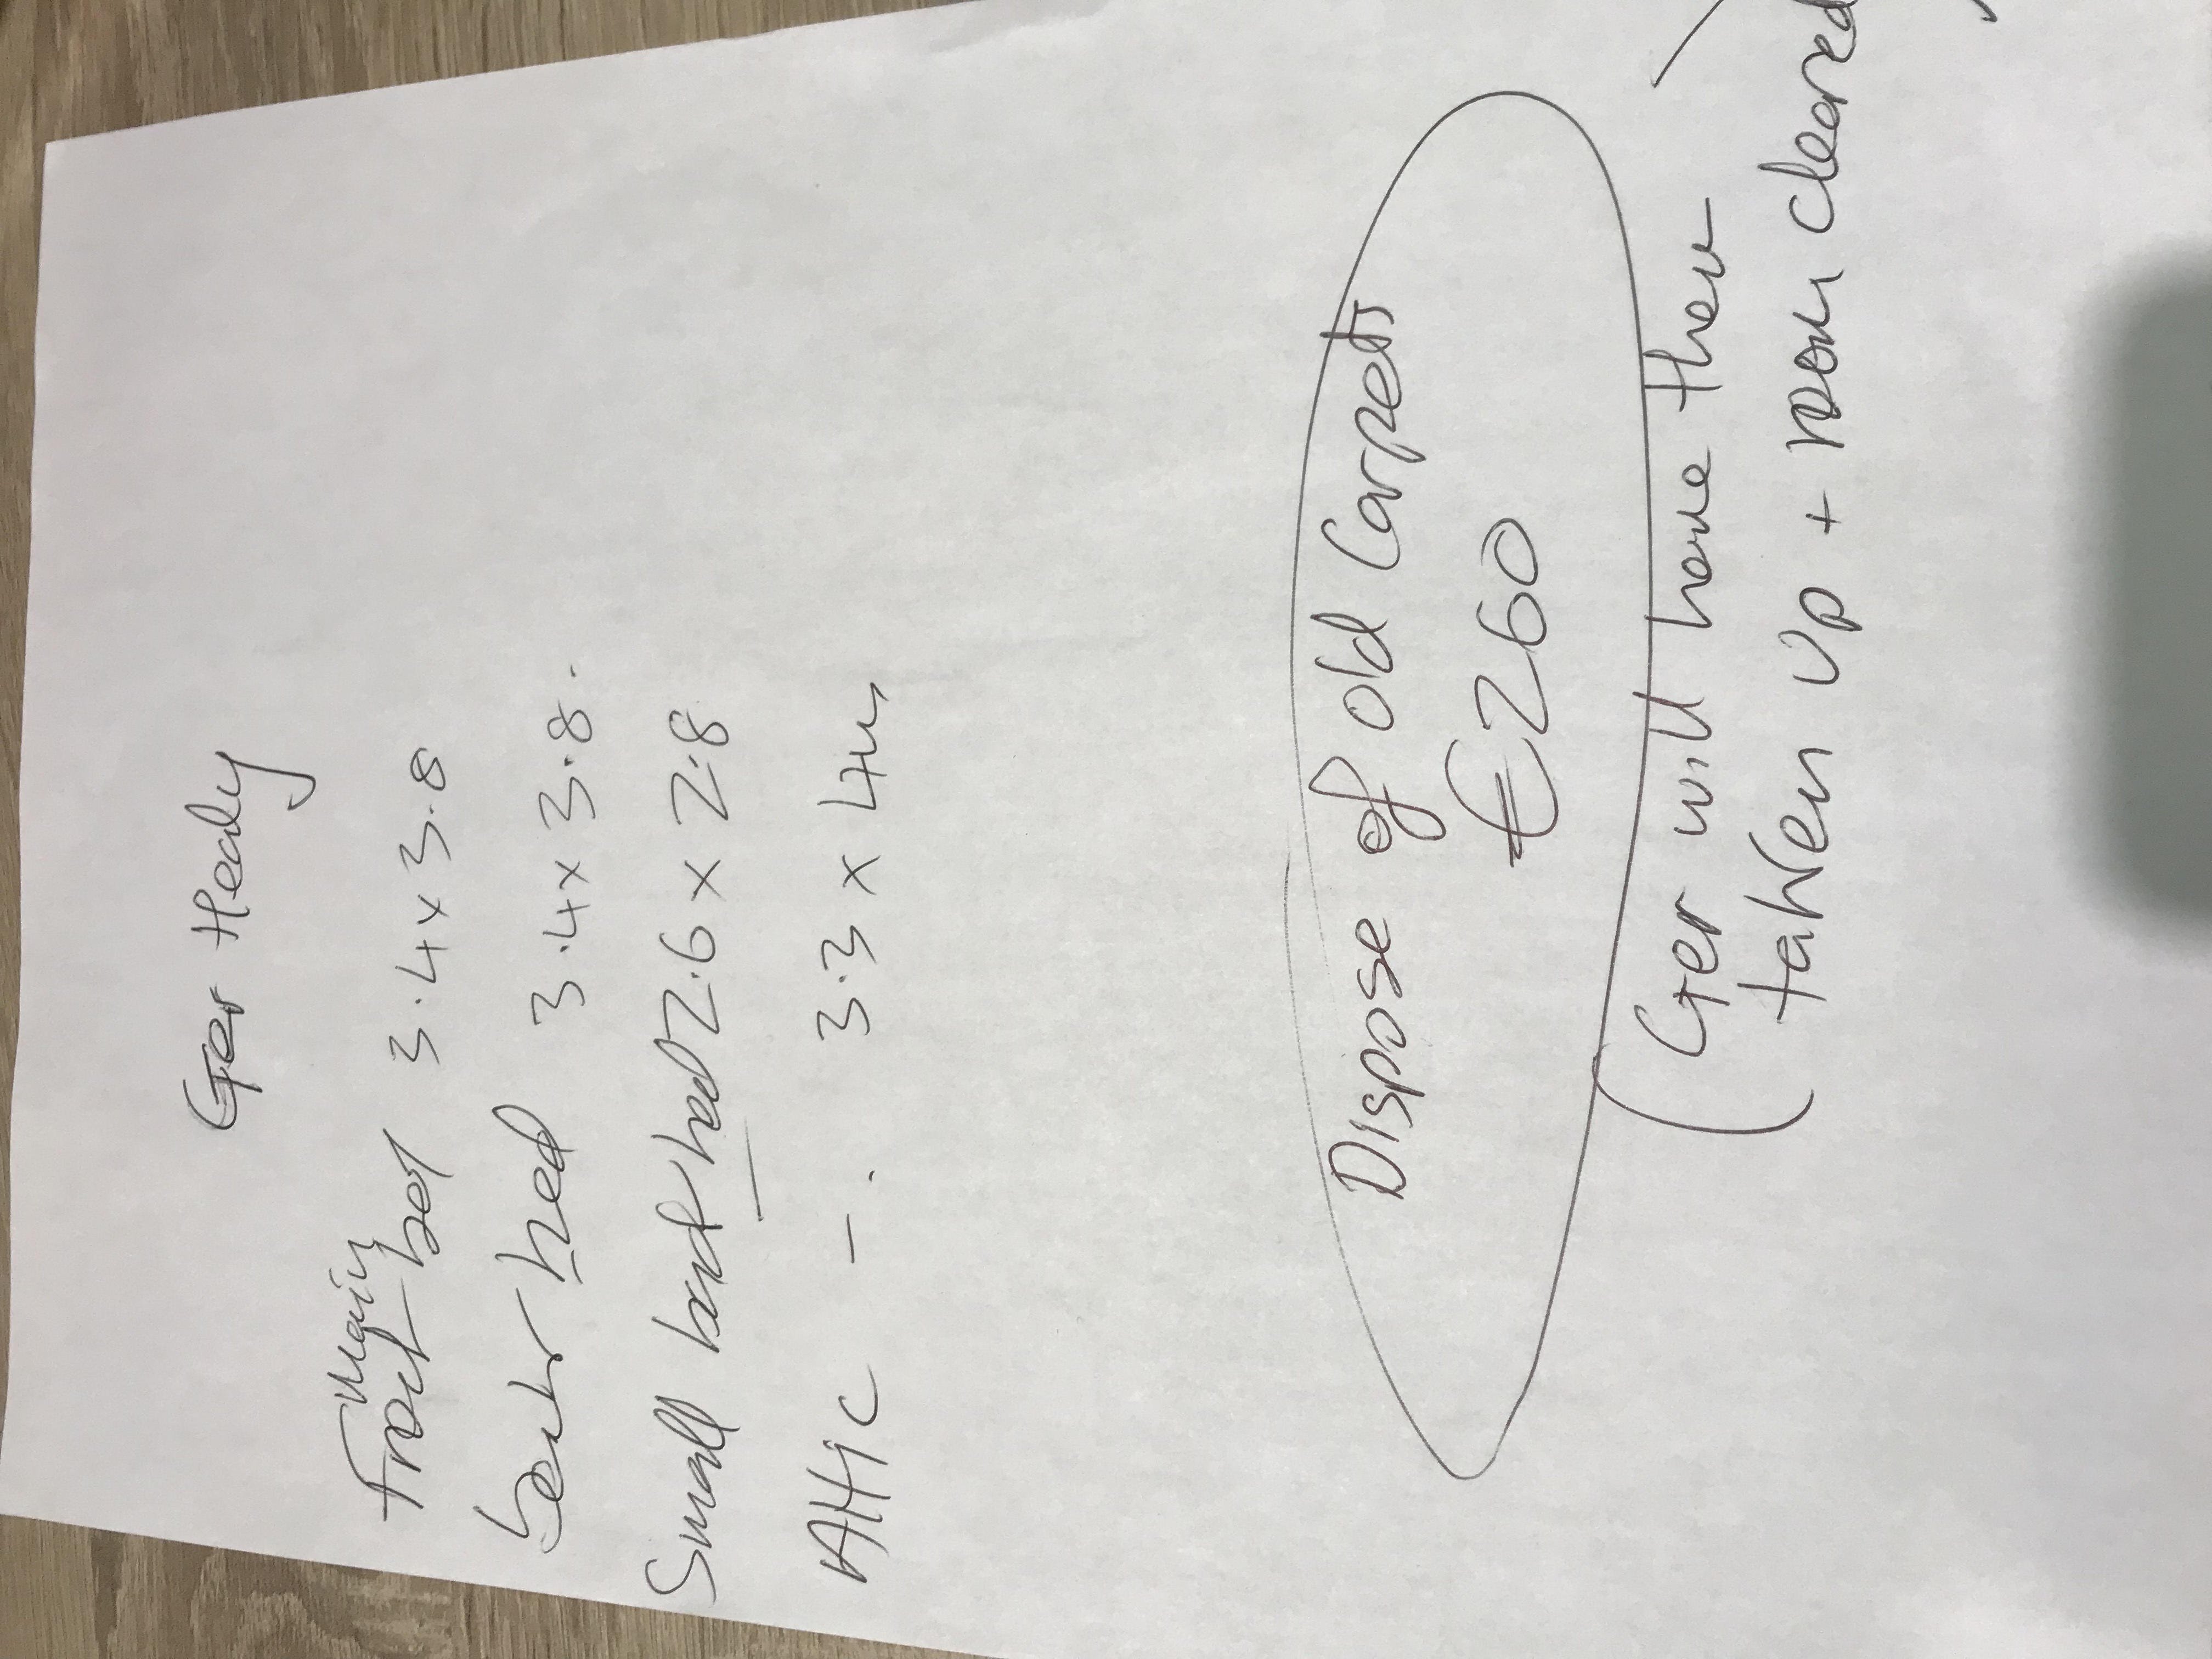 Ger Healy
Main
Front bed 3.4 x 3.8
bed 3.4 x 3.8.
Small back bed 2.6 x 2.8
Attic - . 3.3 x 4m
Dispose of old Carpets
€260
(Ger will have them
taken up + room cleared)